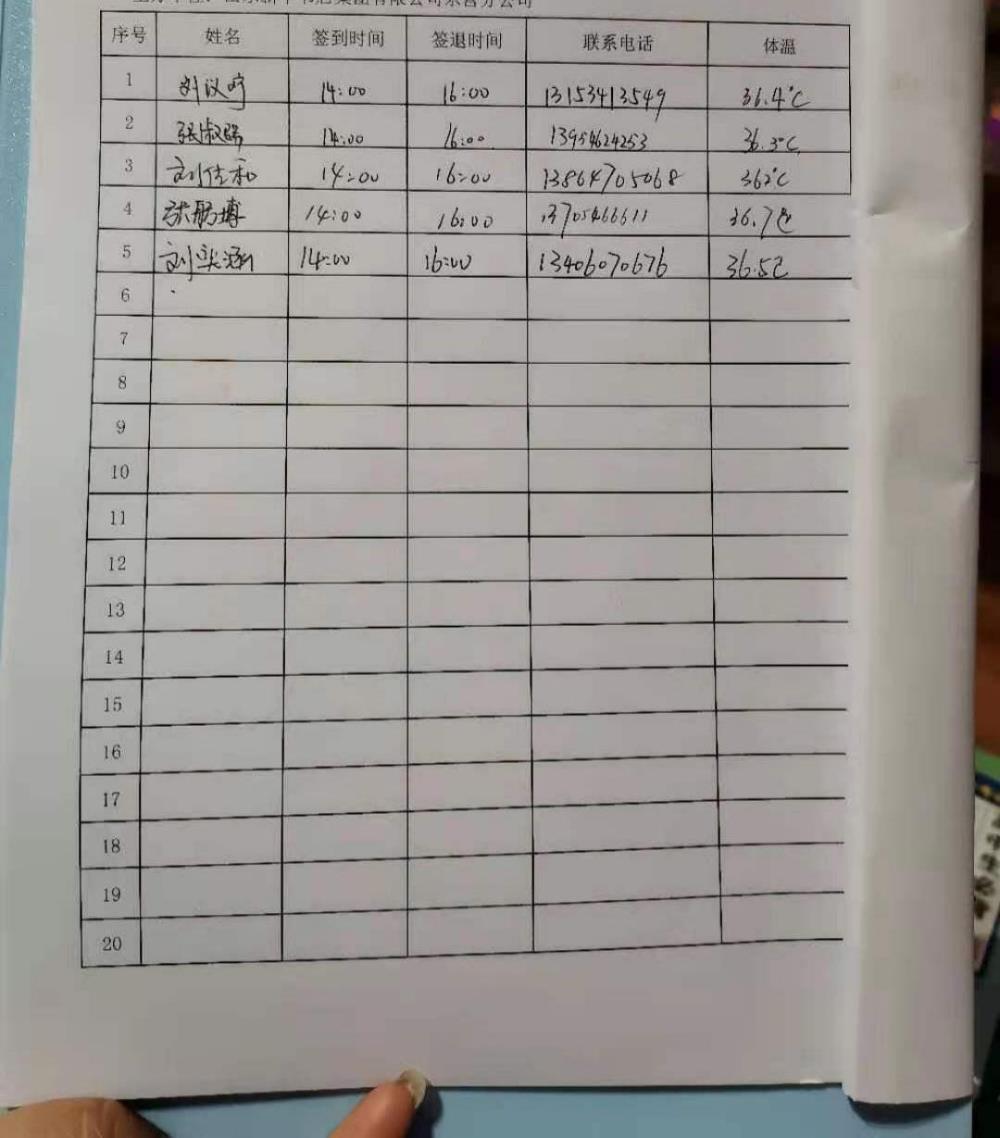 山东新华书店集团有限公司东营分公司
序号 姓名 签到时间 签退时间 联系电话 体温
1 刘议 14:00 16:00 13153413549 36.4℃
2 张淑 14:00 16:00 13954624253 36.3℃
3 刘佳和 14:00 16:00 13864705068 362℃
4 张鹏博 14:00 16:00 13705466611 36.7℃
5 刘奕涵 14:00 16:00 13406070676 36.5℃
6
7
8
9
10
11
12
13
14
15
16
17
18
19
20